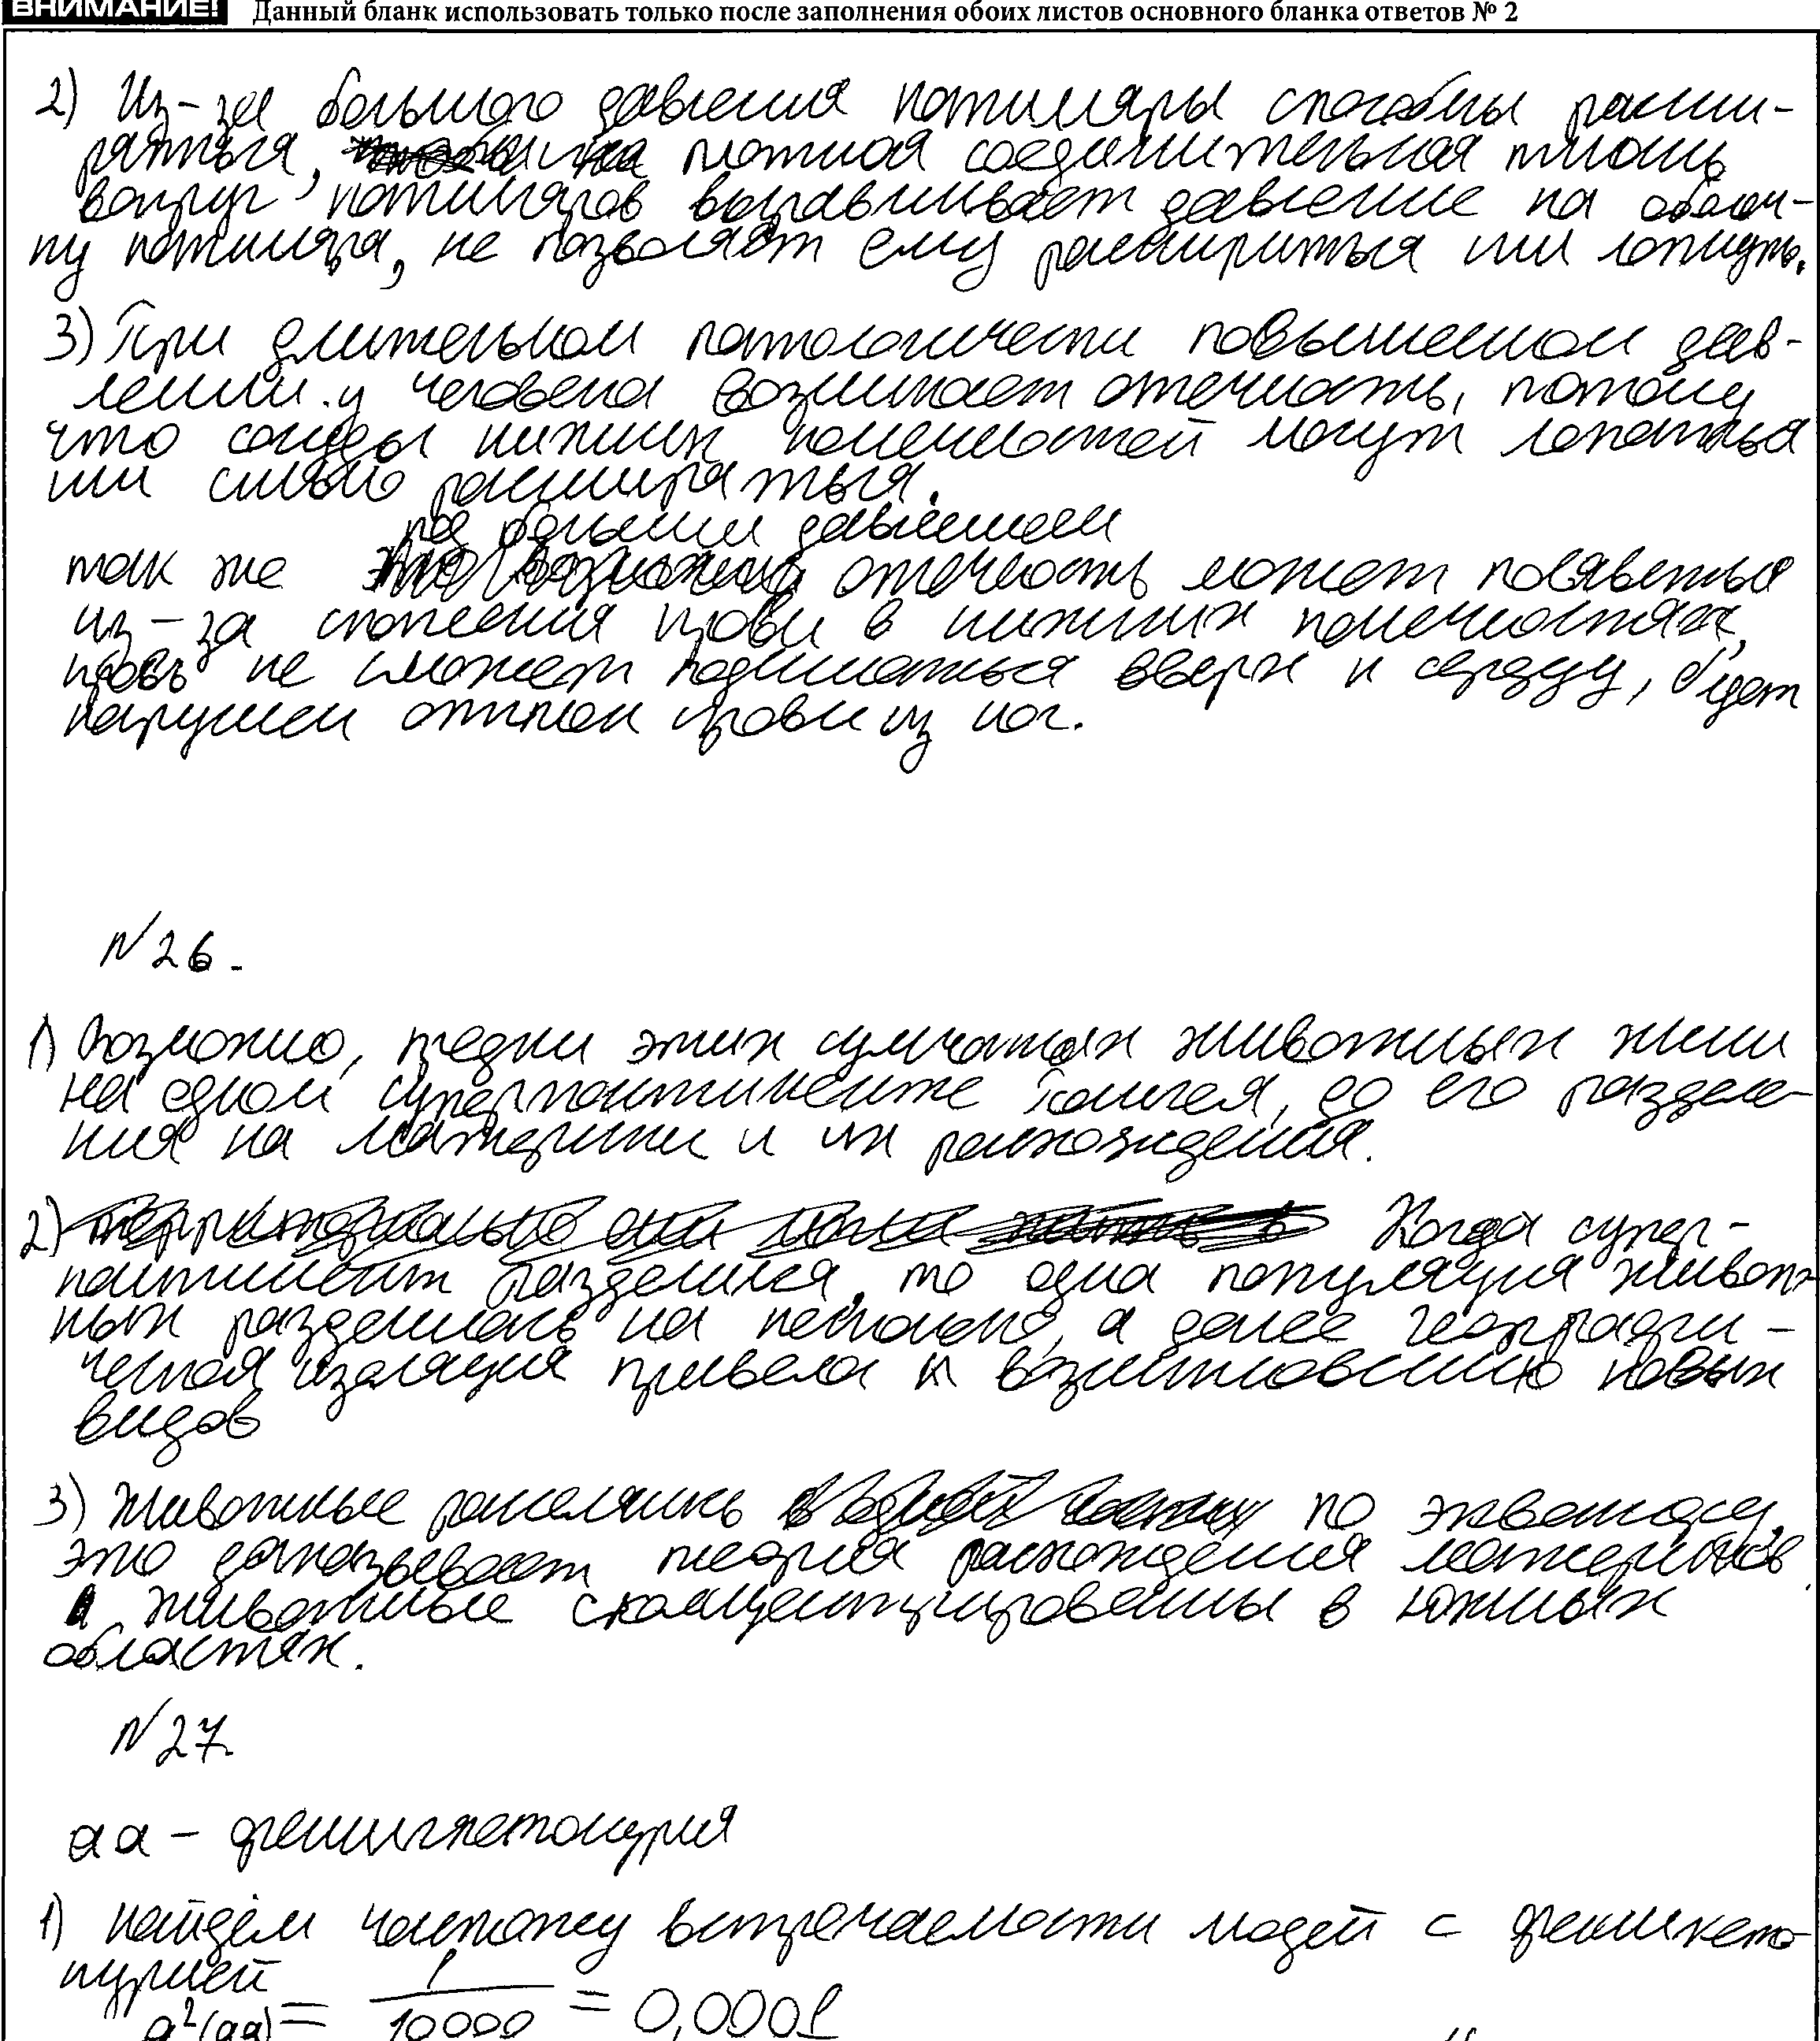 ВНИМАНИЕ! Данный бланк использовать только после заполнения обоих листов основного бланка ответов № 2
2) Из-за большого давления капилляры способны расши-
ряться, плотная соединительная ткань
вокруг капилляров выравнивает давление на оболоч-
ку капилляра, не позволяет ему расшириться или лопнуть.
3) При длительном патологически повышенном дав-
лении у человека возникает отечность, потому
что сосуды нижних конечностей могут лопаться
или сильно расширяться.
под большим давлением
так же отечность может появиться
из-за скопления крови в нижних конечностях,
кровь не сможет подниматься вверх к сердцу, будет
нарушен отток крови из ног.
№26.
1) Возможно, предки этих сумчатых животных жили
на одном суперконтиненте Пангея, до его разделе-
ния на материки и их расхождения.
2) Когда супер-
континент разделился, то одна популяция живот-
ных разделилась на несколько, а далее географи-
ческая изоляция привела к возникновению новых
видов
3) Животные расселялись по экватору,
это доказывает теория расхождения материков.
животные сконцентрированны в южных
областях.
№27.
аа – фенилкетонурия
1) Найдём частоту встречаемости людей с фенилкето-
нурией
q²(aa) = 1/10000 = 0,0001